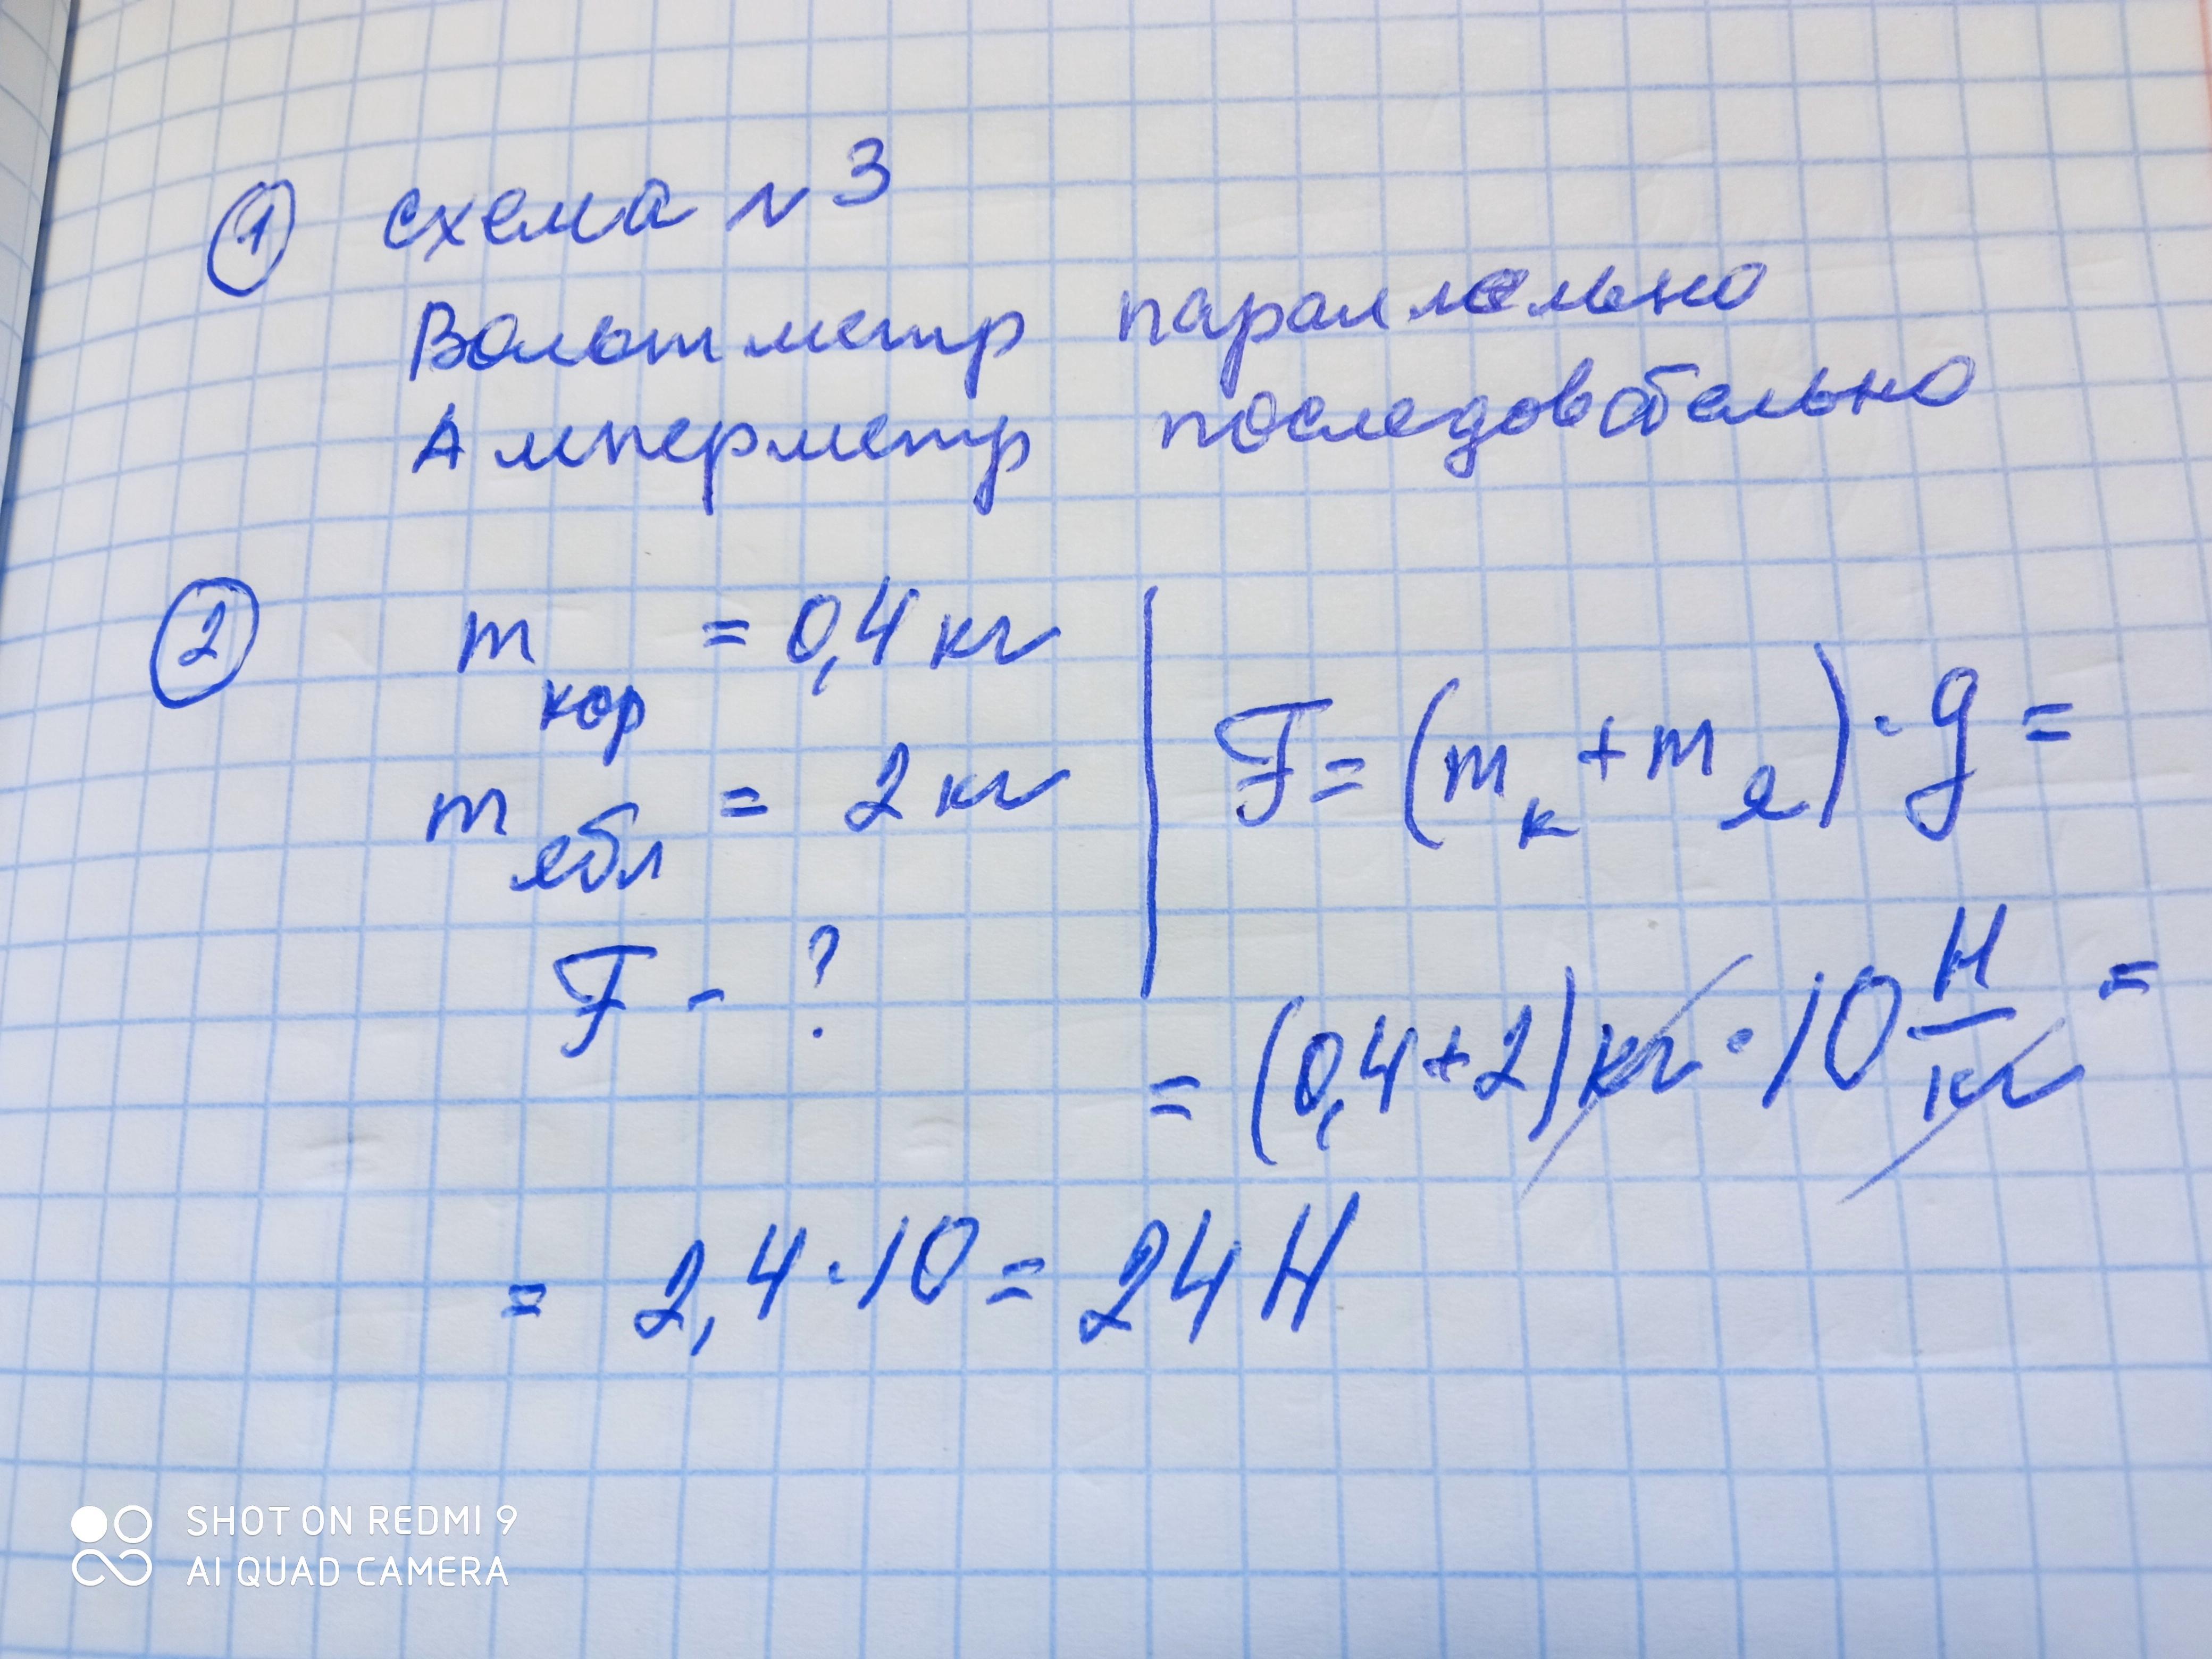 ① схема N 3
Вольтметр параллельно
Амперметр последовательно
② m кор = 0,4 кг
m ябл = 2 кг
F - ?
F = (m к + m я) · g =
= (0,4 + 2) кг · 10 Н/кг =
= 2,4 · 10 = 24 Н
SHOT ON REDMI 9
AI QUAD CAMERA